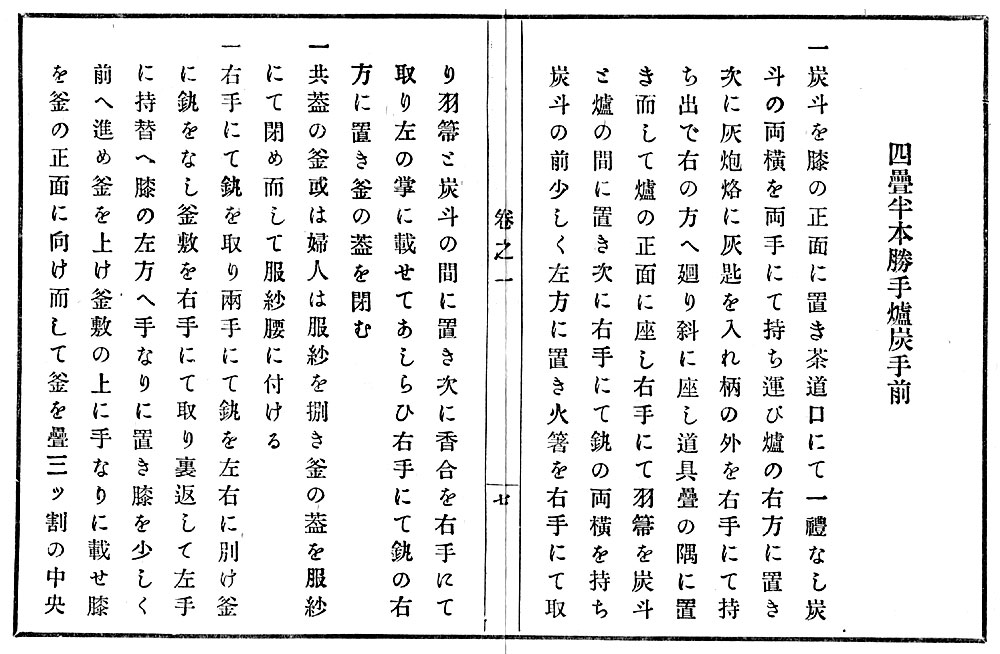 四疊半本勝手爐炭手前
一炭斗を膝の正面に置き茶道口にて一禮なし炭
斗の両橫を両手にて持ち運び爐の右方に置き
次に灰炮烙に灰匙を入れ柄の外を右手にて持
ち出で右の方へ廻り斜に座し道具疊の隅に置
き而して爐の正面に座し右手にて羽箒を炭斗
と爐の間に置き次に右手にて釻の両橫を持ち
炭斗の前少しく左方に置き火箸を右手にて取
卷之一
七
り羽箒と炭斗の間に置き次に香合を右手にて
取り左の掌に載せてあしらひ右手にて釻の右
方に置き釜の葢を閉む
一共葢の釜或は婦人は服紗を捌き釜の葢を服紗
にて閉め而して服紗腰に付ける
一右手にて釻を取り兩手にて釻を左右に別け釜
に釻をなし釜敷を右手にて取り裏返して左手
に持替へ膝の左方へ手なりに置き膝を少しく
前へ進め釜を上け釜敷の上に手なりに載せ膝
を釜の正面に向け而して釜を疊三ッ割の中央